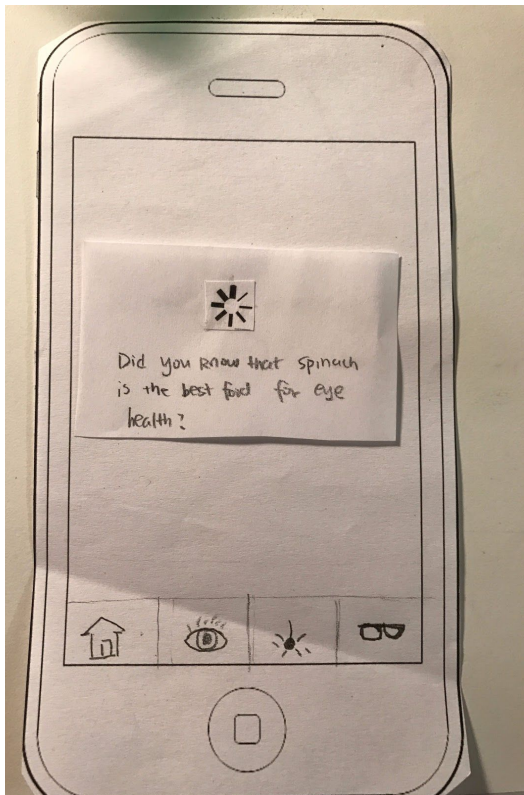 Did you know that spinach
is the best food for eye
health?